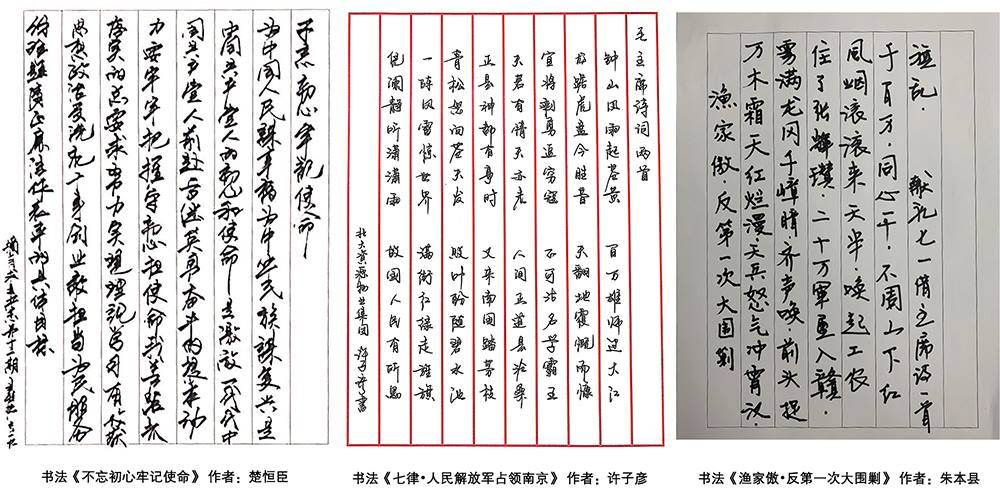 不忘初心牢记使命
为中国人民谋幸福为中华民族谋复兴是
中国共产党人的初心和使命是激励一代代中
国共产党人前赴后继英勇奋斗的根本动
力要牢牢把握守初心担使命找差距抓
落实的总要求努力实现理论学习有收获
思想政治受洗礼干事创业敢担当为民服务
解难题清正廉洁作表率的具体目标
毛主席诗词两首
钟山风雨起苍黄 百万雄师过大江
龙踞虎盘今胜昔 天翻地覆慨而慷
宜将剩勇追穷寇 不可沽名学霸王
天若有情天亦老 人间正道是沧桑
正是神都有事时 又来南国踏芳枝
青松怒向苍天发 败叶纷随碧水池
一阵风雷惊世界 满街红绿走旌旗
凭阑静听潇潇雨 故国人民有所思
北大资源物业集团 许子彦书
渔家傲·反第一次大围剿
万木霜天红烂漫·天兵怒气冲霄汉·
雾满龙冈千嶂暗·齐声唤·前头捉
住了张辉瓒·二十万军重入赣·
风烟滚滚来天半·唤起工农
千百万·同心干·不周山下红
旗乱 献礼七一 主席诗一首
书法《不忘初心牢记使命》 作者：楚恒臣
书法《七律·人民解放军占领南京》 作者：许子彦
书法《渔家傲·反第一次大围剿》 作者：朱本县